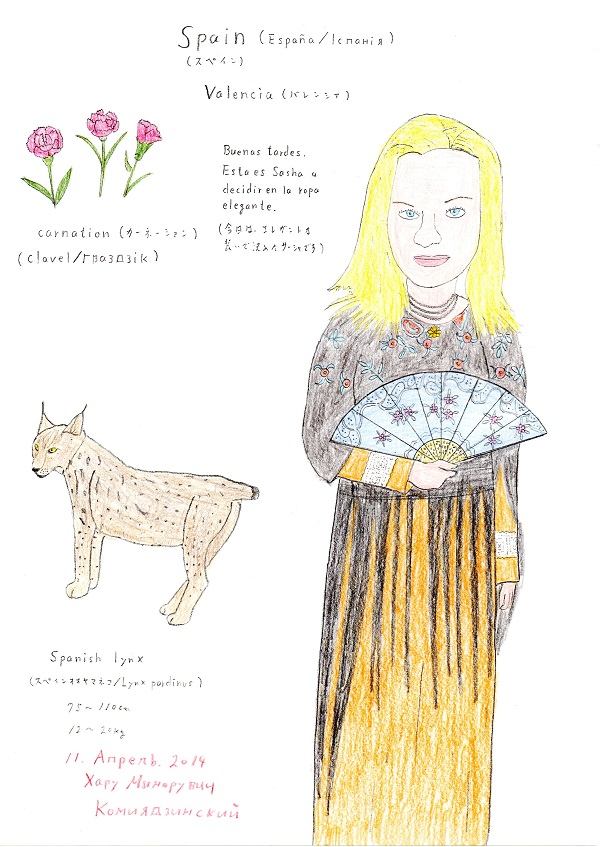 Spain (España/Іспанія)
(スペイン)
Valencia (バレンシア)
Buenas tardes.
Esta es Sasha a
decidir en la ropa
elegante.
(今日は、エレガントな
装いで決めたサーシャです)
carnation (カーネーション)
(clavel/Гваздзік)
Spanish lynx
(スペインオオヤマネコ/Lynx pardinus)
75~110cm
12~20kg
11. Апрель. 2014
Хару Минорувич
Комиядзинский